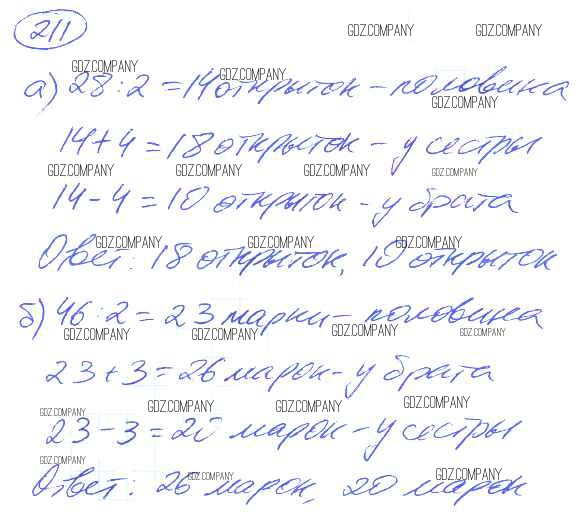 211
GDZ.COMPANY GDZ.COMPANY
GDZ.COMPANY GDZ.COMPANY
а) 28:2 = 14 открыток - половина
GDZ.COMPANY
14+4 = 18 открыток - у сестры
GDZ.COMPANY GDZ.COMPANY GDZ.COMPANY GDZ.COMPANY
14-4 = 10 открыток - у брата
GDZ.COMPANY GDZ.COMPANY GDZ.COMPANY
Ответ: 18 открыток, 10 открыток
б) 46:2 = 23 марки - половина
GDZ.COMPANY GDZ.COMPANY GDZ.COMPANY GDZ.COMPANY
23+3 = 26 марок - у брата
GDZ.COMPANY GDZ.COMPANY GDZ.COMPANY GDZ.COMPANY
23-3 = 20 марок - у сестры
GDZ.COMPANY GDZ.COMPANY GDZ.COMPANY
Ответ: 26 марок, 20 марок